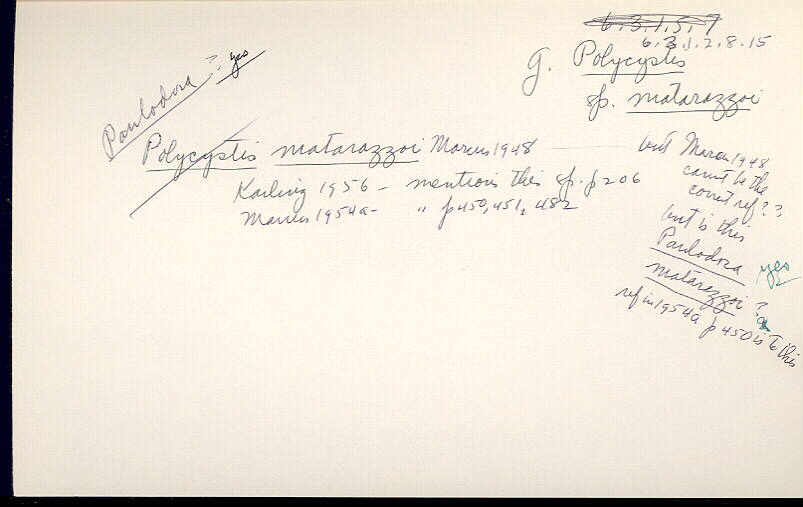 6.3.1.5.7
6.3.1.2.8.15
g. Polycystis
sp. matarazzoi
Paulodora ? yes
Polycystis matarazzoi Marcus 1948
Karling 1956 - mentions this sp. p 206
Marcus 1954a - " p 450, 451, 482
but Marcus 1948
cannot be the
correct ref??
but is this
Paulodora
matarazzoi ?
yes
ref in 1954a p 450 is to this